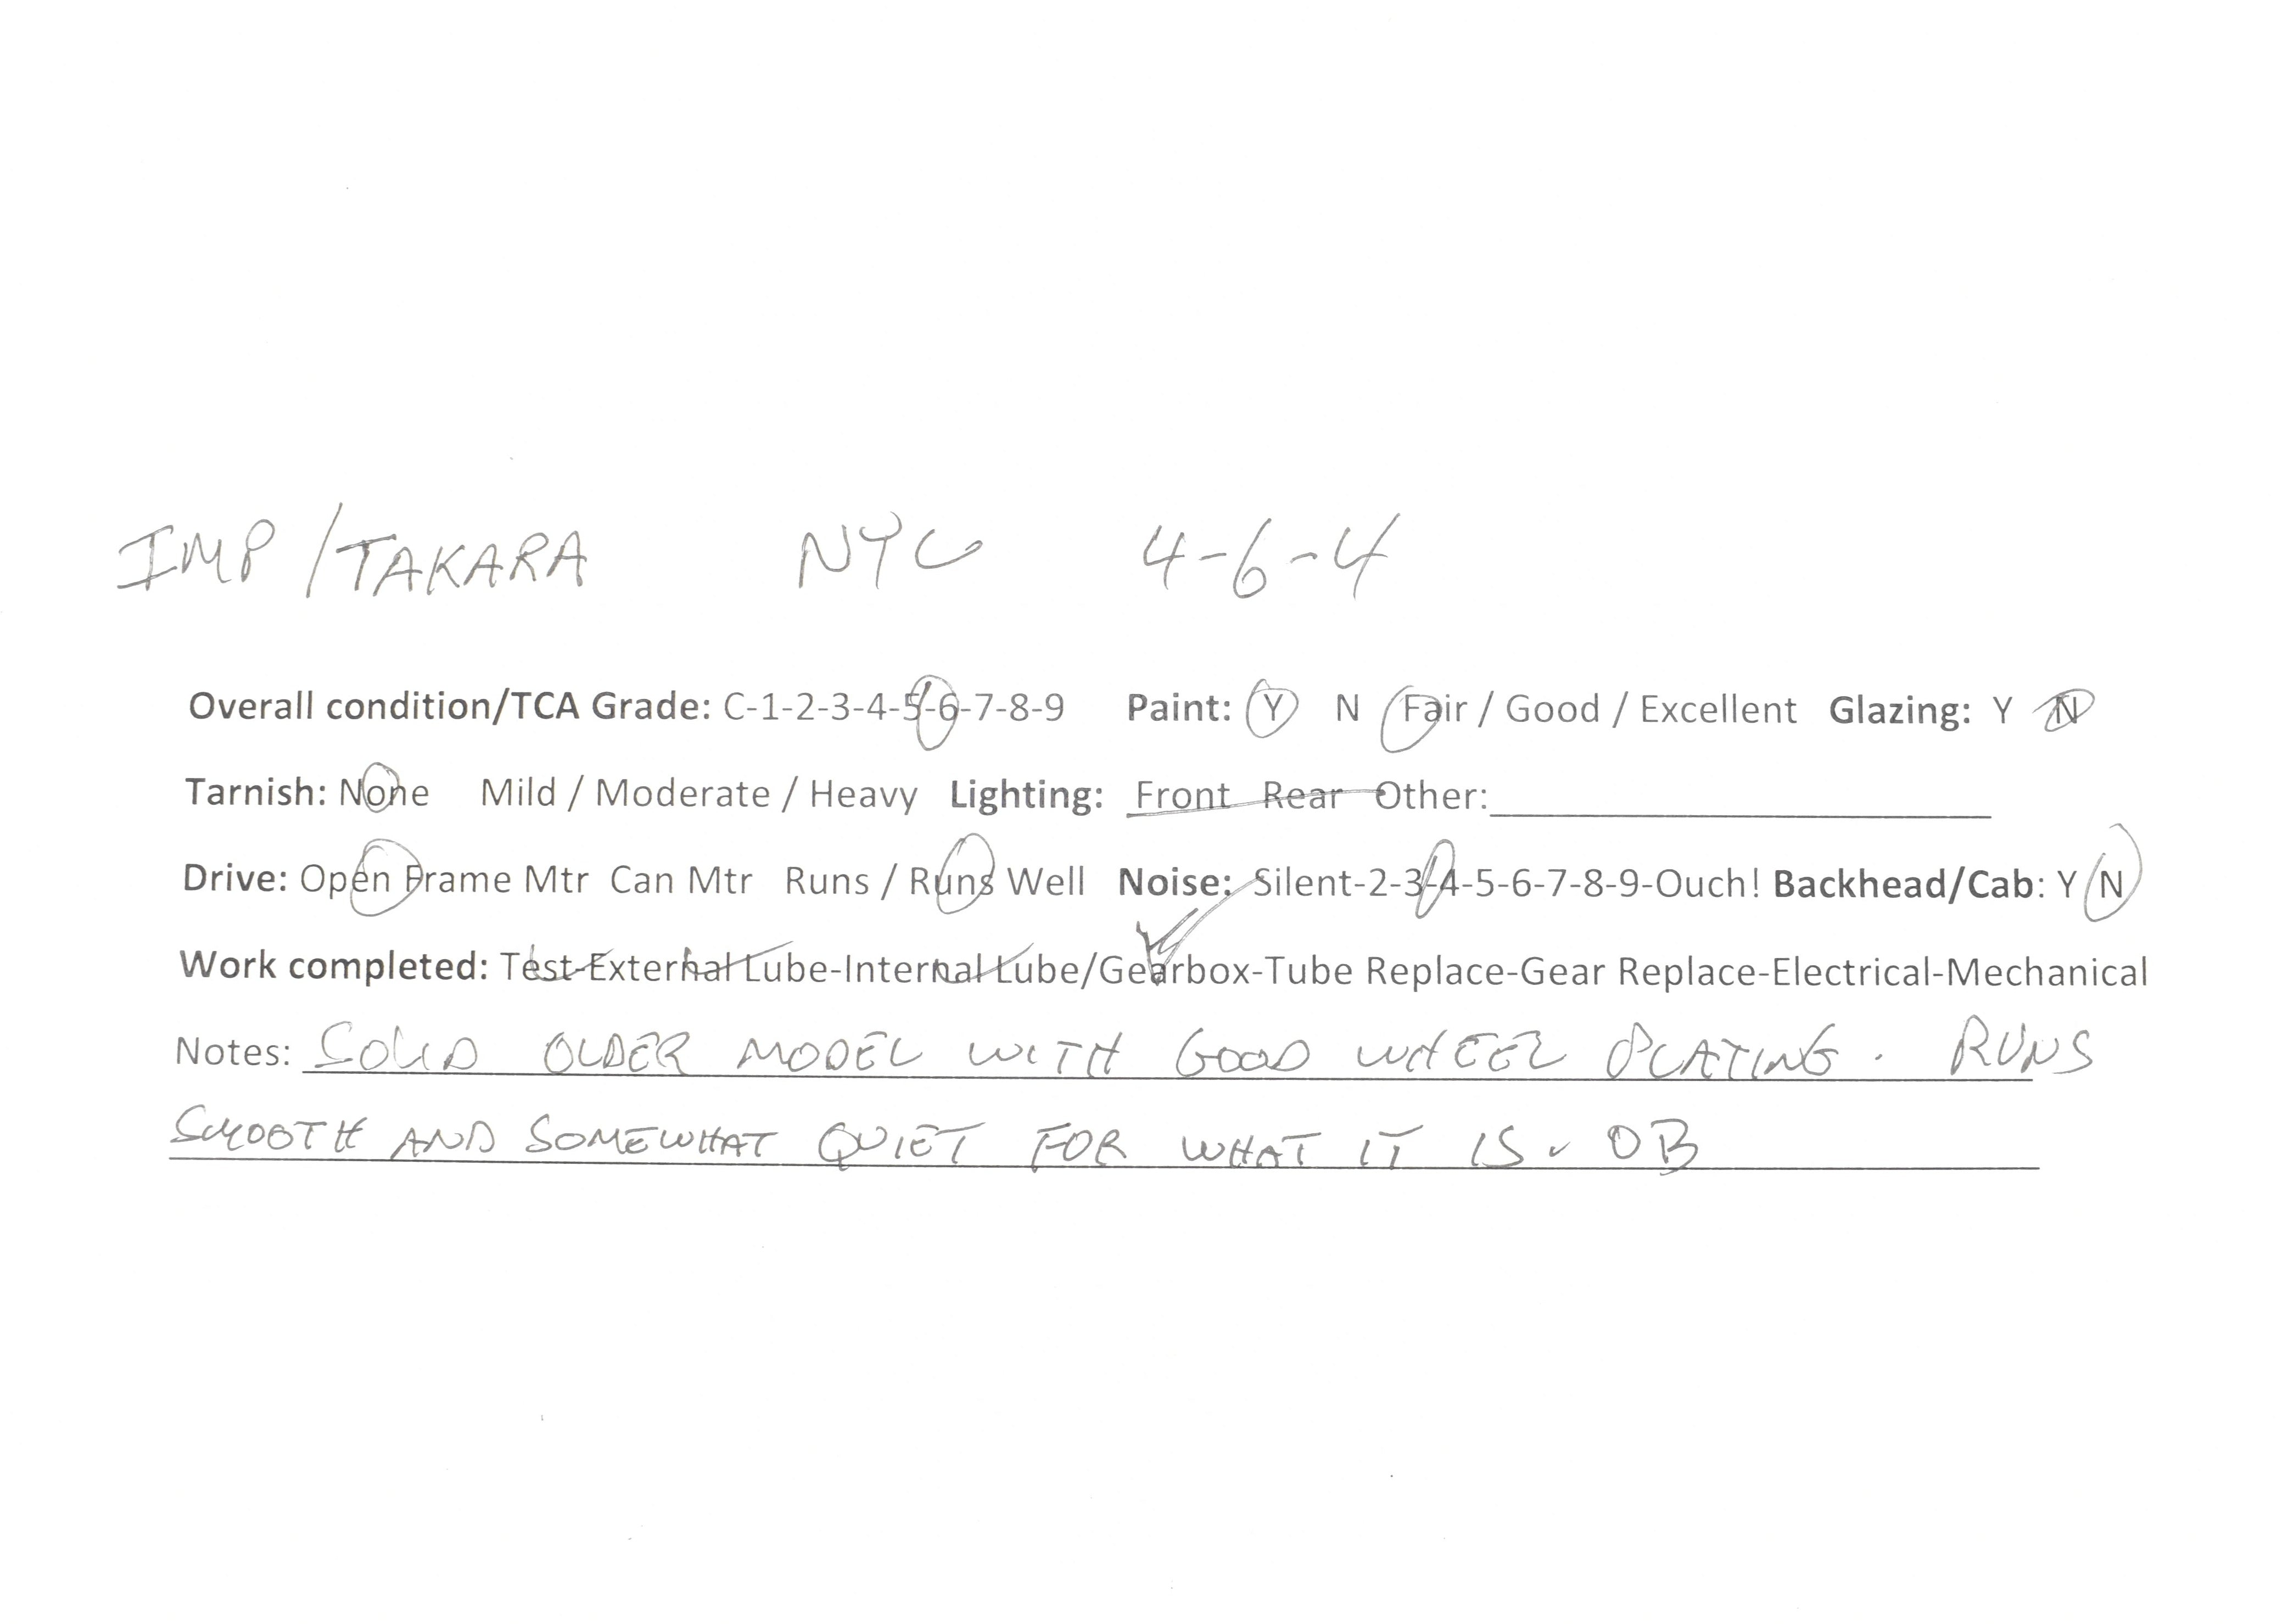 IMP /TAKARA NYC 4-6-4
Overall condition/TCA Grade: C-1-2-3-4-5-6-7-8-9 Paint: Y N Fair / Good / Excellent Glazing: Y N
Tarnish: None Mild / Moderate / Heavy Lighting: Front Rear Other:
Drive: Open Frame Mtr Can Mtr Runs / Runs Well Noise: Silent-2-3-4-5-6-7-8-9-Ouch! Backhead/Cab: Y N
Work completed: Test-External Lube-Internal Lube/Gearbox-Tube Replace-Gear Replace-Electrical-Mechanical
Notes: SOLID OLDER MODEL WITH GOOD WHEEL PLATING. RUNS
SMOOTH AND SOMEWHAT QUIET FOR WHAT IT IS. OB